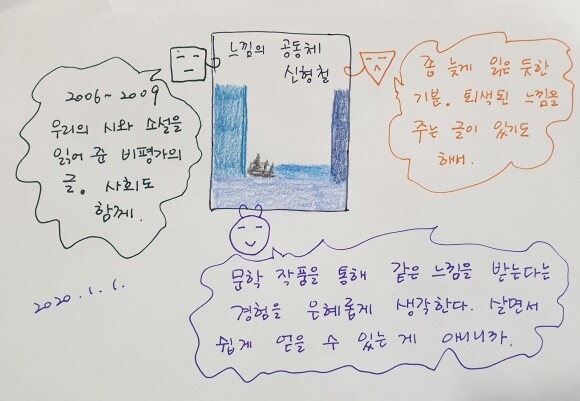 느낌의 공동체
신형철
2006~2009
우리의 시와 소설을
읽어 준 비평가의
글. 사회도
함께.
좀 늦게 읽은 듯한
기분. 퇴색된 느낌을
주는 글이 있기도
해서.
문학 작품을 통해 같은 느낌을 받는다는
경험을 은혜롭게 생각한다. 살면서
쉽게 얻을 수 있는 게 아니니까.
2020.1.1.